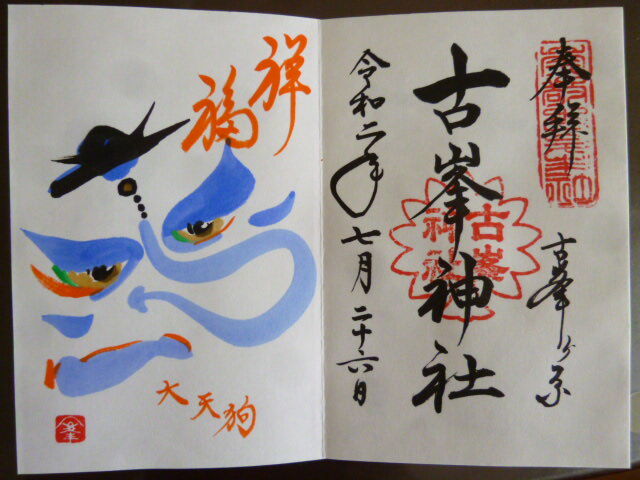 奉拝
古峯ヶ原
古峯神社
古峯
神社
令和二年七月二十六日
祥
福
大天狗